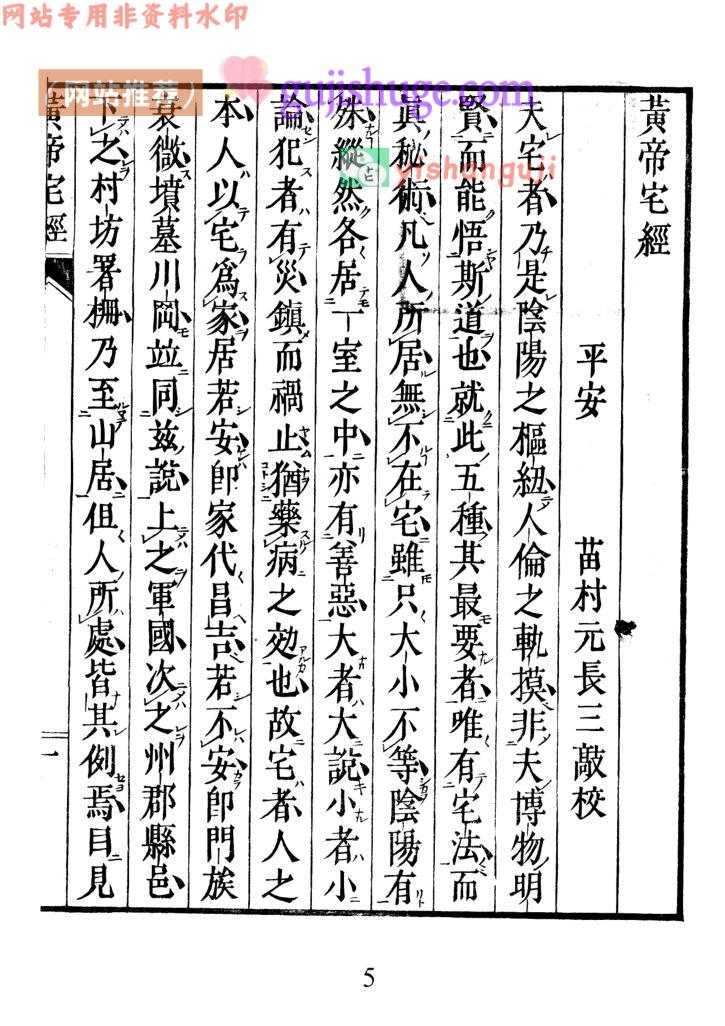 网站专用非资料水印
（网站推荐）
gujishuge.com
yishanguji
黃帝宅經
平安　苗村元長三敲校
夫宅者乃是陰陽之樞紐人倫之軌摸非夫博物明
賢而能悟斯道也就此五種其最要者唯有宅法而
眞秘術凡人所居無不在宅雖只大小不等陰陽有
殊縱然各居一室之中亦有善惡大者大說小者小
論犯者有災鎮而禍止猶藥病之効也故宅者人之
本人以宅爲家居若安卽家代昌吉若不安卽門族
衰微墳墓川岡竝同玆說上之軍國次之州郡縣邑
下之村坊署柵乃至山居但人所處皆其例焉目見
黃帝宅經
一
5